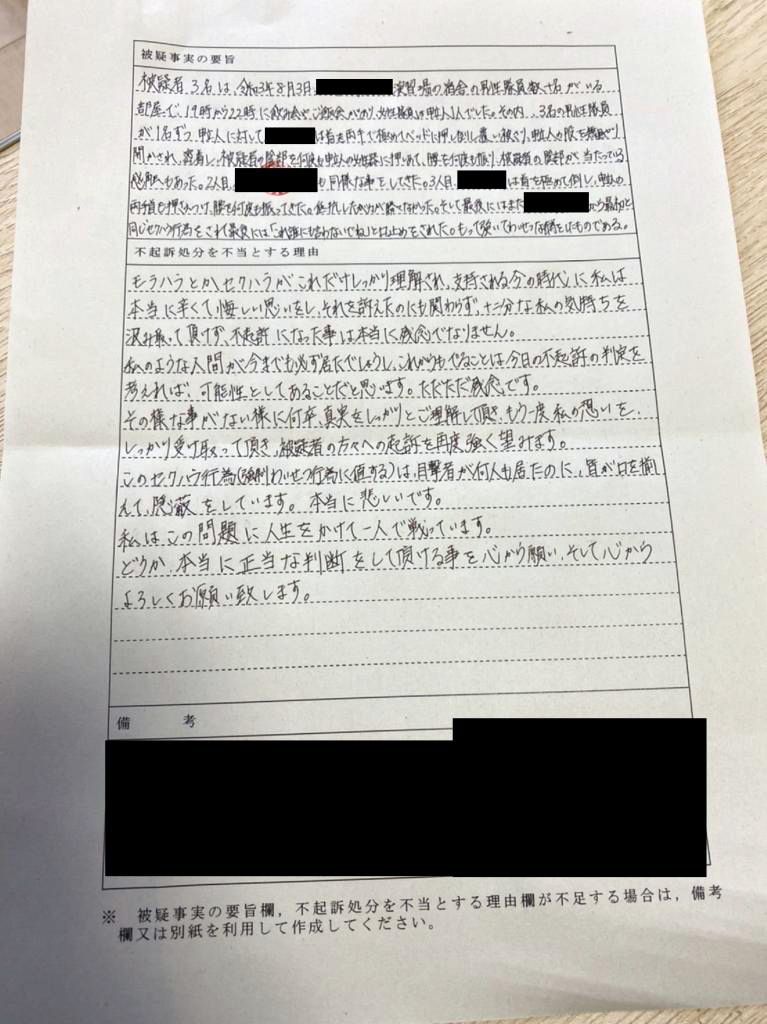 被疑事実の要旨
被疑者3名は、令和3年8月3日 演習場の宿舎の男性隊員数十名がいる
部屋で、19時から22時に飲み会で があり、女性隊員は申告人1人でした。その内、3名の男性隊員
が1名ずつ、申告人に対して は首を両手で極めてベッドに押し倒し覆い被さり、申告人の股を無理やり
開かされ、密着し、被疑者の陰部を何度も申告人の女性器に押し当て、腰を何度も振り、被疑者の陰部が当たっている
感触もあった。2人目 も同様な事をしてきた。3人目 は首を極めて倒し、申告人の
両手首を押さえつけ、腰を何度も振ってきた。抵抗したが力が勝てなかった。そして最後にはまた から最初と
同じセクハラ行為をされ最後には「これ誰にも言わないでね」と口止めをされた。もって強いてわいせつな行為をしたものである。
不起訴処分を不当とする理由
モラハラとか、セクハラがこれだけしっかり理解され、支持される今の時代に私は
本当に辛くて、悔しい思いをし、それを訴えたのにも関わらず、十二分な私の気持ちを
汲み取って頂けず、不起訴になった事は本当に残念でなりません。
私のような人間が今までも必ず居たでしょうし、これからもでることは今日の不起訴の判定を
考えれば、可能性としてあることだと思います。ただただ残念です。
その様な事がない様に何卒、真実をしっかりとご理解して頂き、もう一度私の想いを、
しっかり受け取って頂き、被疑者の方々への起訴を再度強く望みます。
このセクハラ行為(強制わいせつ行為に値する)は、目撃者が何人も居たのに、皆が口を揃
えて、隠蔽をしています。本当に悲しいです。
私はこの問題に人生をかけて一人で戦っています。
どうか、本当に正当な判断をして頂ける事を心から願い、そして心から
よろしくお願い致します。
備 考
※ 被疑事実の要旨欄，不起訴処分を不当とする理由欄が不足する場合は，備考
欄又は別紙を利用して作成してください。